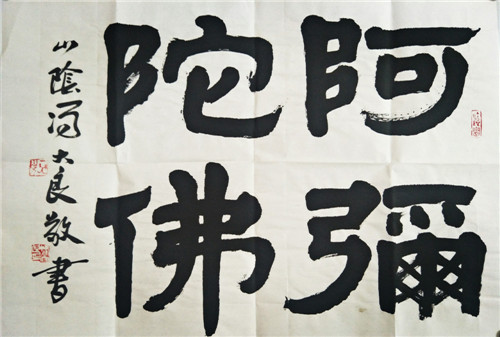 阿彌
陀佛
山陰馮大良敬書